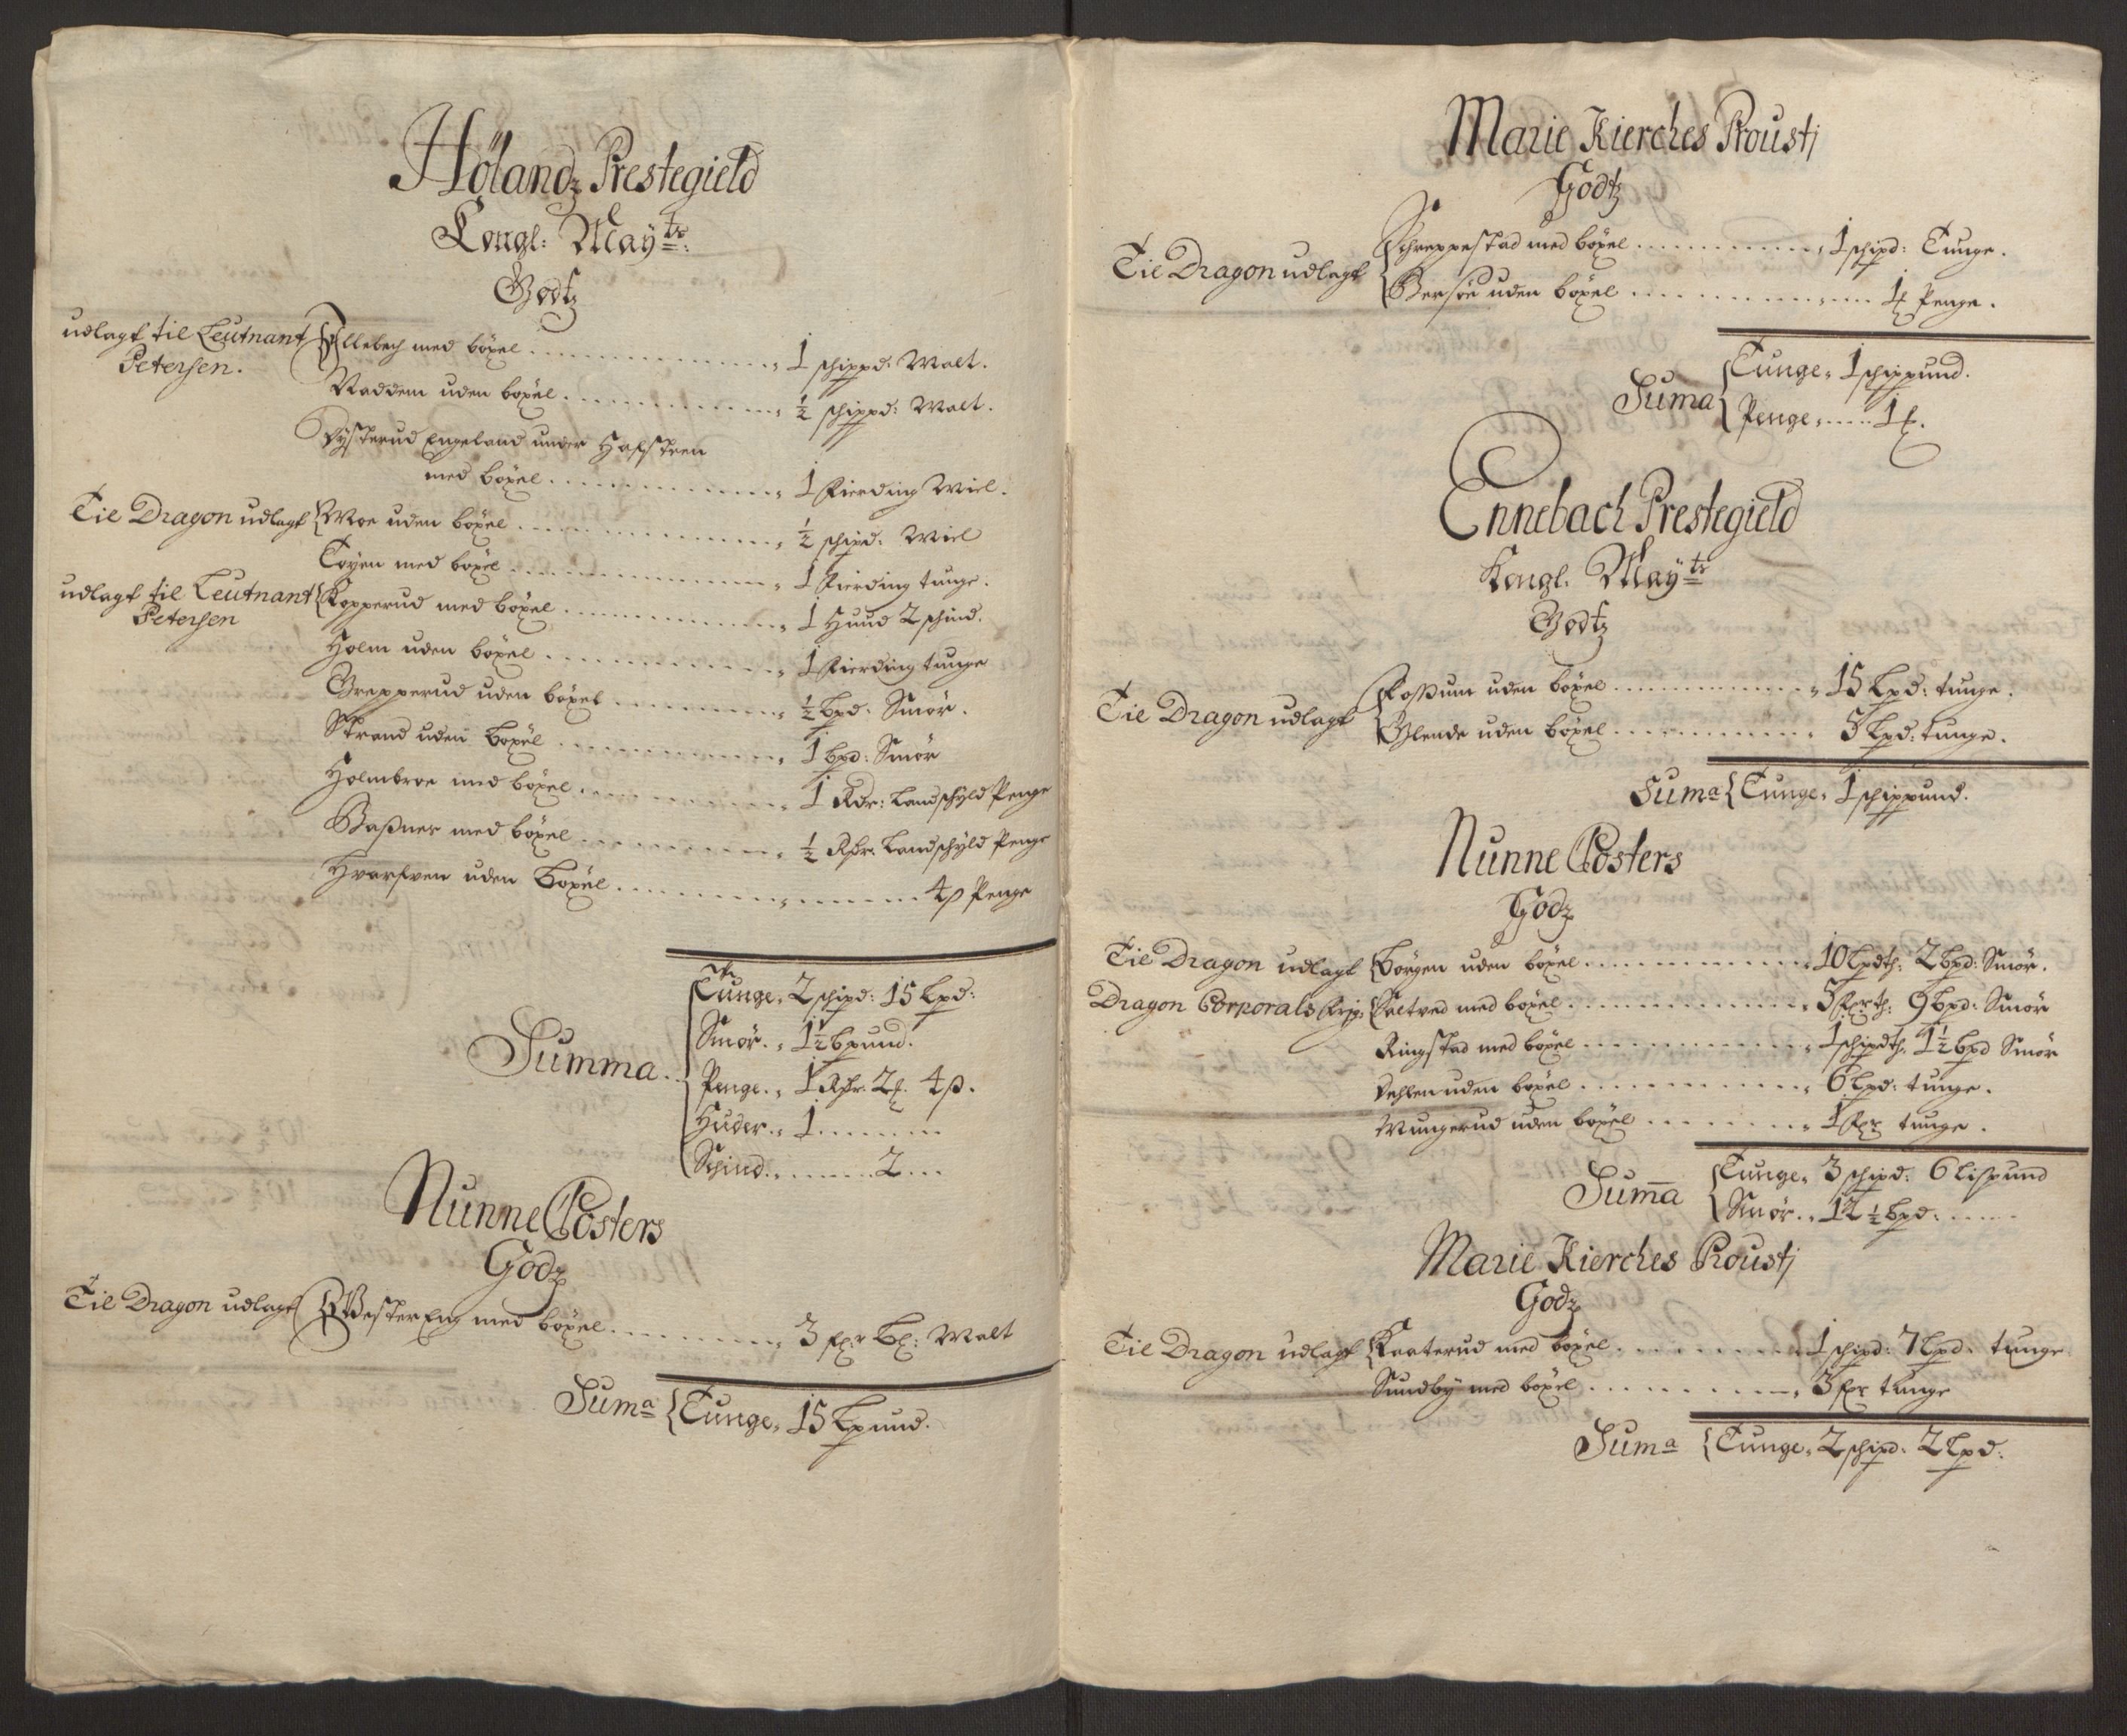 Hölandz Prestegield
Kongl: Mayts:
Godtz
udlagt til Leutnant Petersen. { Ellebech med böxel . . . 1 schippd: Malt.
Naddem uden böxel . . . ½ schippd: Malt.
Dysterud Engeland under Hafsteen
med böxel . . . 1 Fierding Miel.
Til Dragon udlagt { Moe uden böxel . . . ½ schipd: Miel
Töyen med böxel . . . 1 Fierding tunge.
udlagt til Leutnant Petersen { Kopperud med böxel . . . 1 Huud 2 schind.
Holm uden böxel . . . 1 Fierding tunge
Grepperud uden böxel . . . ½ bpd: Smör.
Strand uden Böxel . . . 1 bpd: Smör
Holmbroe med böxel . . . 1 Rdr: Landschyld Penge
Baßnes med böxel . . . ½ Rdr: Landschyld Penge
Hvarfven uden Böxel . . . 4 ß Penge
Summa. { Tunge, 2 schipd: 15 Lpd:
Smör. , 1½ bpund.
Penge. , 1 Rdr. 2 . 4 ß.
Huder. , 1 . . .
Schind. . . . 2 . . .
Nunne Closters
Godz
Til Dragon udlagt { Westereng med böxel . . . 3 fr Bl: Malt
Suma { Tunge, 15 Lpund.
Marie Kierches Prousti
Godtz
Til Dragon udlagt { Schreppestad med böxel . . . 1 schipd: Tunge.
Bersöe uden böxel . . . 1 Penge.
Suma { Tunge, 1 schippund.
Penge, . . . 1 .
Ennebach Prestegield
Kongl. Mayts
Godtz
Til Dragon udlagt { Foßum uden böxel . . . 15 Lpd: tunge.
Glende uden böxel . . . 5 Lpd: tunge.
Suma { Tunge, 1 schippund.
Nunne Closters
Godz
Til Dragon udlagt { Börgen uden böxel . . . 10 Lpdth: 2 bpd: Smör.
Dragon Corporals { Taltved med böxel . . . 5 th: 9 bpd: Smör
Ringstad med böxel . . . 1 schipdth, 1½ bpd Smör
Vehlen uden böxel . . . 6 Lpd: tunge.
Mungerud uden böxel . . . 1 tunge.
Suma { Tunge, 3 schipd: 6 Lispund
Smör. , 12½ bpd: . . .
Marie Kierches Prousti
Godz
Til Dragon udlagt { Kraaterud med böxel . . . 1 schipd: 7 Lpd: tunge
Sundby med böxel . . . 3 tunge
Suma { Tunge, 2 schipd: 2 Lpd: